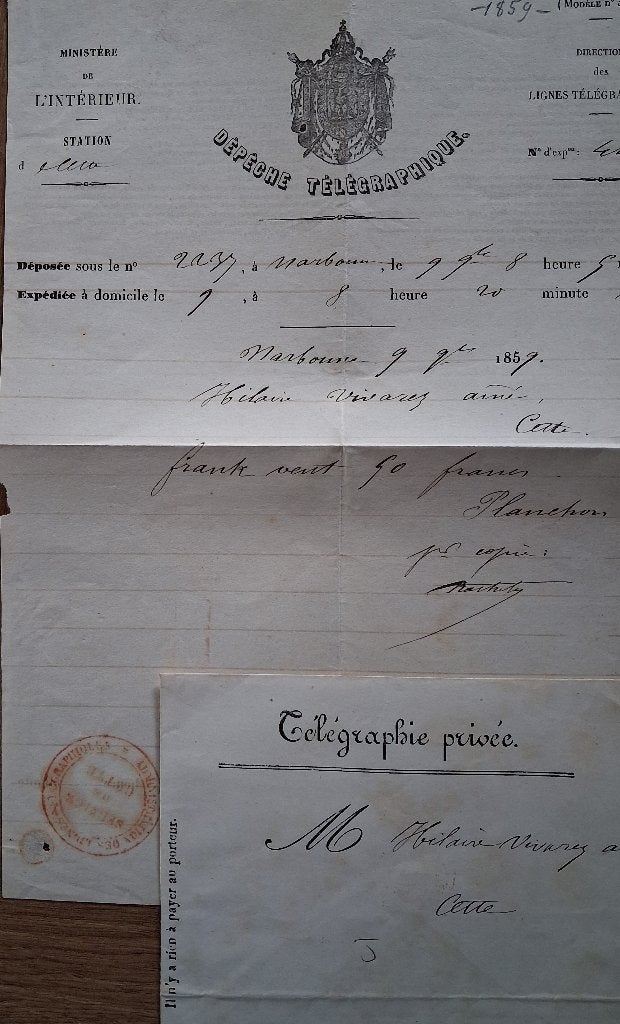 -1859-
(MODÈLE N°
MINISTÈRE
DE
L'INTÉRIEUR.
STATION
d
DÉPÊCHE TÉLÉGRAPHIQUE.
DIRECTION
des
LIGNES TÉLÉGRA
N° d'expon:
Déposée sous le n° 2237, à Narbonne, le 9 9bre 8 heure 5
Expédiée à domicile le 9, à 8 heure 20 minute
Narbonne 9 9bre 1859.
Hilaire Vivarez ainé,
Cette.
frank vent 50 francs
Planchon
pr copie:
Télégraphie privée.
M Hilaire Vivarez a
Cette
Il n'y a rien à payer au porteur.